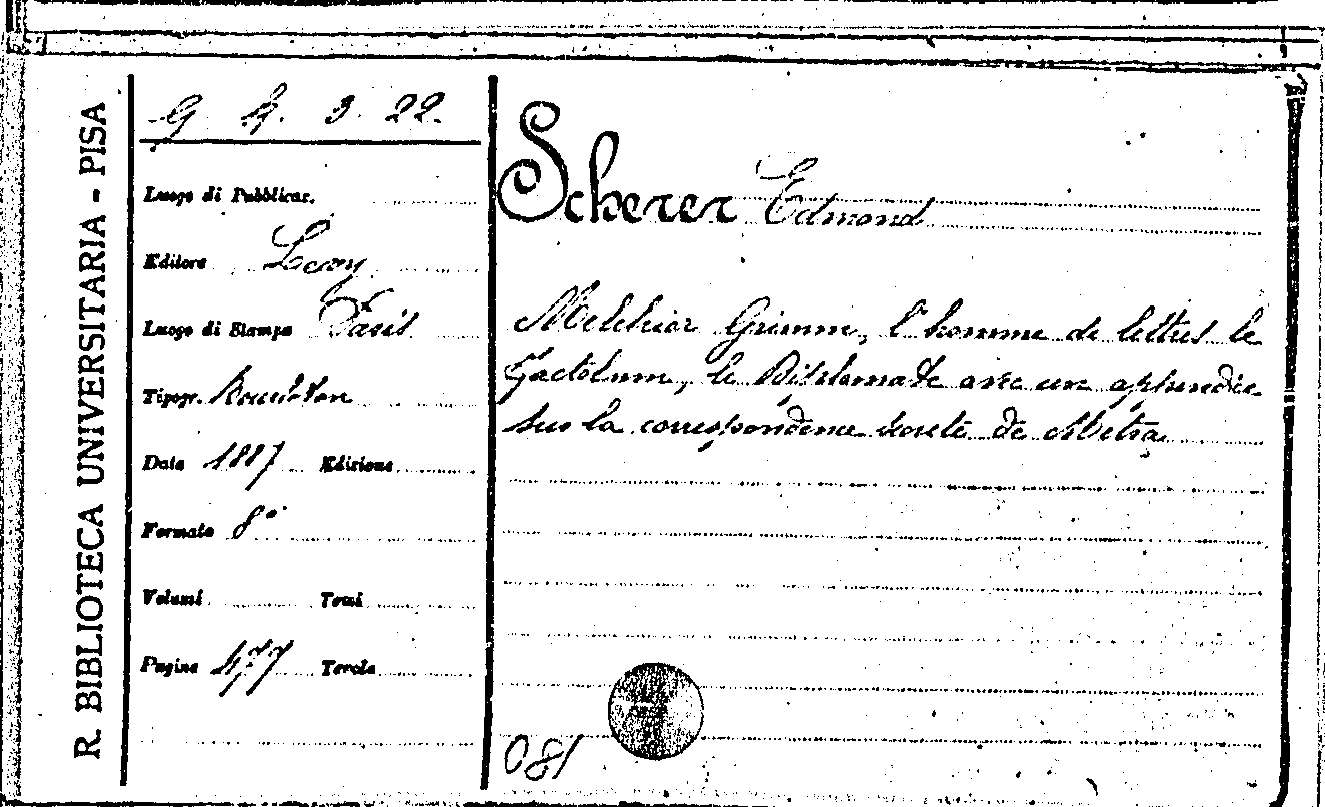 R. BIBLIOTECA UNIVERSITARIA - PISA
G h. 3. 22.
Luogo di Pubblicaz.
Editore Levy
Luogo di Stampa Paris
Tipogr.
Data 1887 Edizione
Formato 8°
Volumi Tomi
Pagine 477 Tavole
Scherer Edmond
Melchior Grimm, l'homme de lettres le
Factotum, le Diplomate avec un aphendice
sur la correspondence secrete de Metra
081